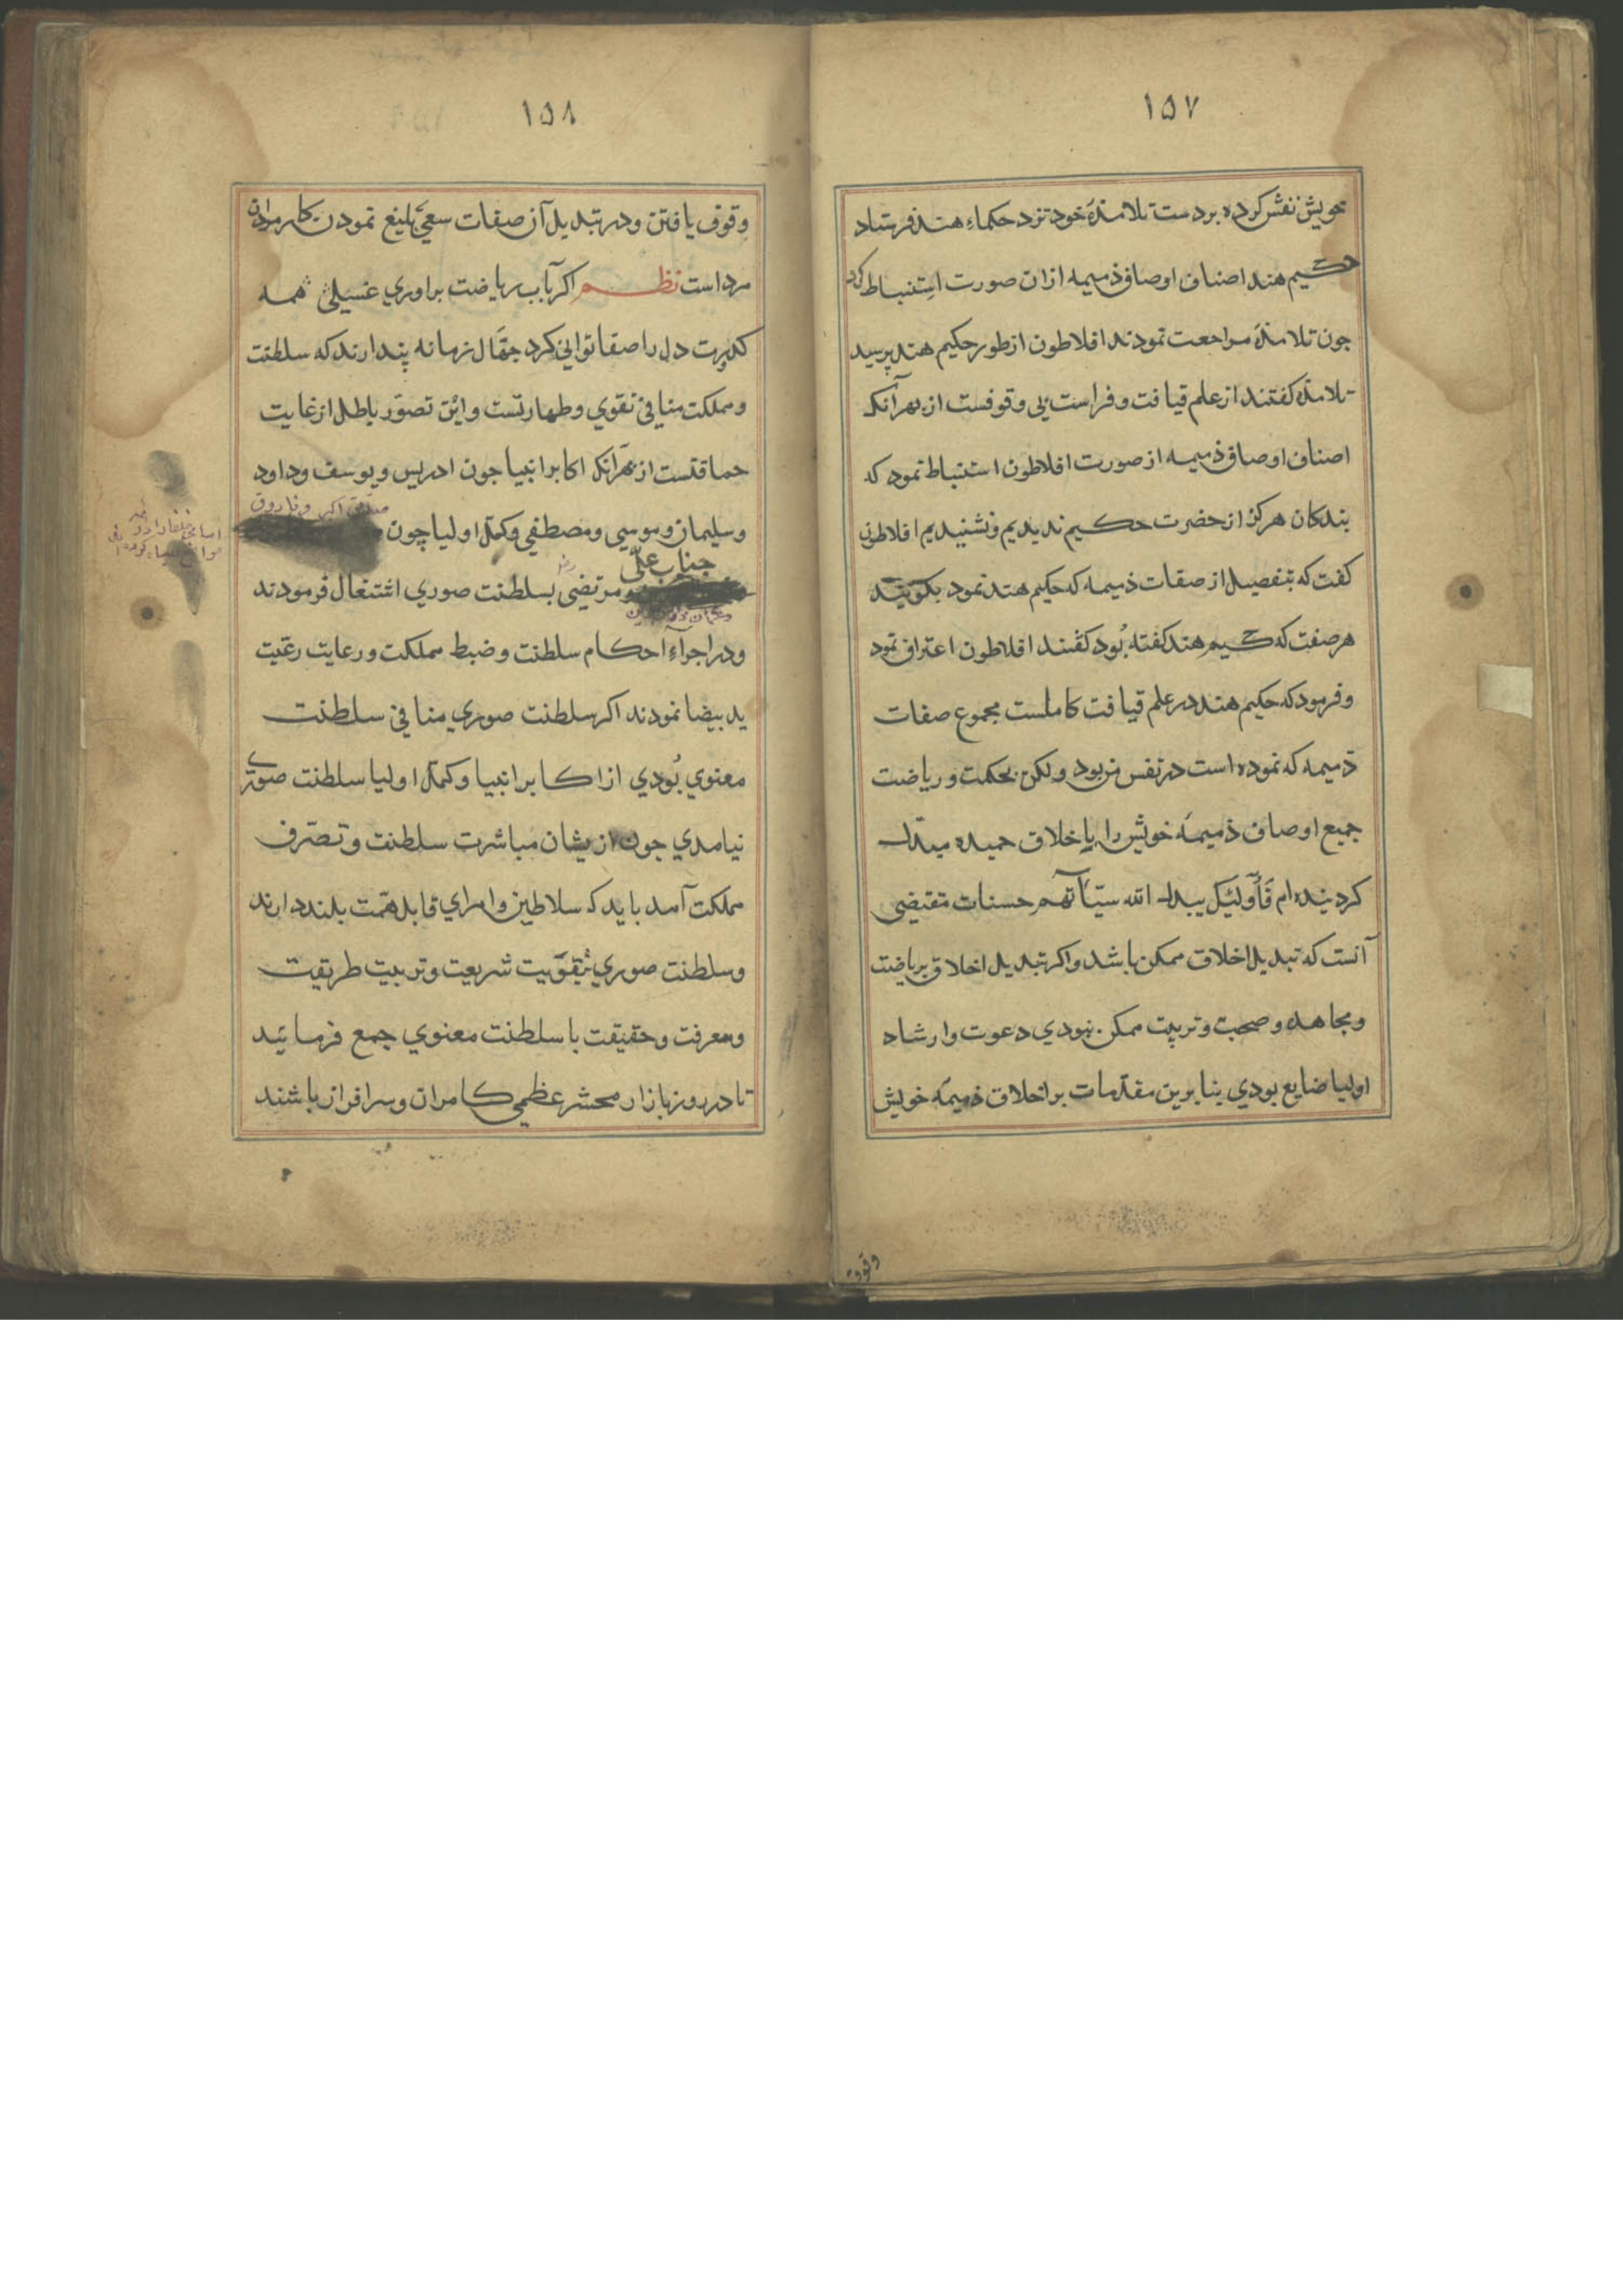 ١٥٧
خویش نقش کرده بردست تلامذهٔ خود نزد حکماء هند فرستاد
حکیم هند اصناف اوصاف ذمیمه ازان صورت استنباط کرد
جون تلامذه مراجعت نمودند افلاطون از طور حکیم هند پرسید
تلامذه کفتند از علم قیافت و فراست بی وقوفست از بهر آنک
اصناف اوصاف ذمیمه از صورت افلاطون استنباط نمود که
بندکان هرکز از حضرت حکیم ندیدیم ونشنیدیم افلاطون
کفت که بتفصیل از صفات ذمیمه که حکیم هند نمود بکویید
هر صفت که حکیم هند کفته بُود کفتند افلاطون اعتراف نمود
و فرمود که حکیم هند در علم قیافت کاملست مجموع صفات
ذمیمه که نموده است در نفس من بود ولکن بحکمت و ریاضت
جمیع اوصاف ذمیمهٔ خویش را باخلاق حمیده مبدّل
کردنیده ام فَأُولَئِكَ يبدل الله سيّآتهم حسنات مقتضی
آنست که تبدیل اخلاق ممکن باشد واکر تبدیل اخلاق بریاضت
ومجاهده و صحبت و تربیت ممکن نبودی دعوت وارشاد
اولیا ضایع بودی بنابرین مقدّمات بر اخلاق ذمیمهٔ خویش
وقوف
١٥٨
وقوف یافتن و در تبدیل آن صفات سعیٔ بلیغ نمودن کار مردان
مرد است نظم اکر بآب ریاضت براوری غسیلی همه
کدورت دل را صفا توانی کرد جهّال زمانه پندارند که سلطنت
ومملکت منافی تقوی وطهارتست واین تصوّر باطل از غایت
حماقتست از بهرآنک اکابر انبیا جون ادریس ویوسف وداود
صدّیق اکبر وفاروق
وسلیمان وموسی ومصطفی وکمّل اولیا چون
جناب علی
ومرتضی بسلطنت صوری اشتغال فرمودند
ودر اجراءِ احکام سلطنت وضبط مملکت ورعایت رعیّت
ید بیضا نمودند اکر سلطنت صوری منافی سلطنت
معنوی بُودی از اکابر انبیا وکمّل اولیا سلطنت صوری
نیامدی جون ازیشان مباشرت سلطنت وتصرّف
مملکت آمد باید که سلاطین وامرای قابل همّت بلند دارند
وسلطنت صوری بتقویت شریعت وتربیت طریقت
ومعرفت وحقیقت با سلطنت معنوی جمع فرمائید
تا در روز بازار محشر عظمی کامران وسرافراز باشند